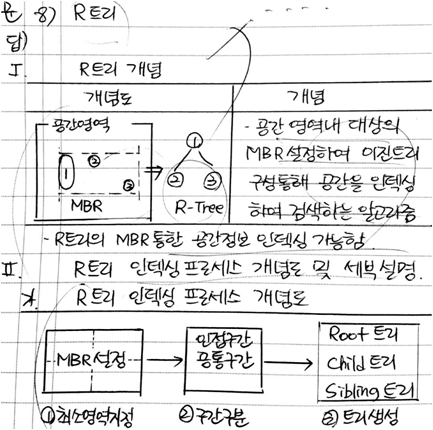 문 8) R트리
답)
I. R트리 개념
개념도 개념
공간영역
1 2 3
MBR
1
2 3
R-Tree
- 공간 영역내 대상의
MBR설정하여 이진트리
구성통해 공간을 인덱싱
하여 검색하는 알고리즘
- R트리의 MBR통한 공간정보 인덱싱 가능함.
II. R트리 인덱싱 프로세스 개념도 및 세부설명.
가. R트리 인덱싱 프로세스 개념도
MBR설정
인접구간
공통구간
Root 트리
Child 트리
Sibling 트리
① 최소영역지정 ② 구간구분 ③ 트리생성